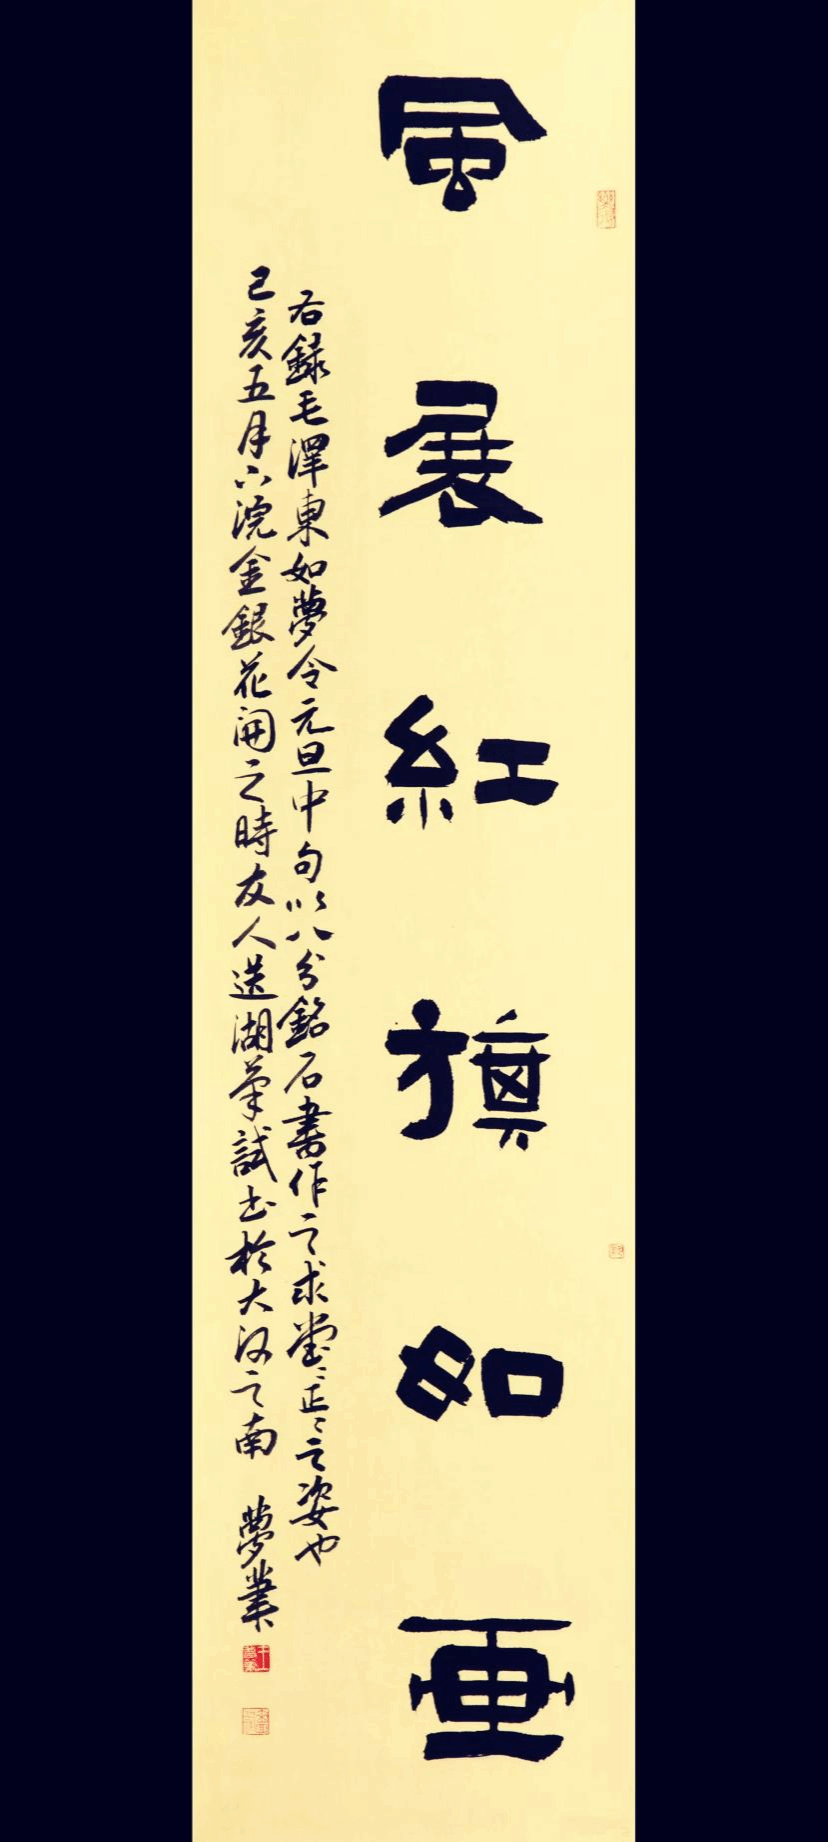 風展紅旗如畫
右錄毛澤東如夢令元旦中句以八分銘石書作之求堂〻正〻之姿也
己亥五月下浣金銀花開之時友人送湖筆試書於大河之南 夢業